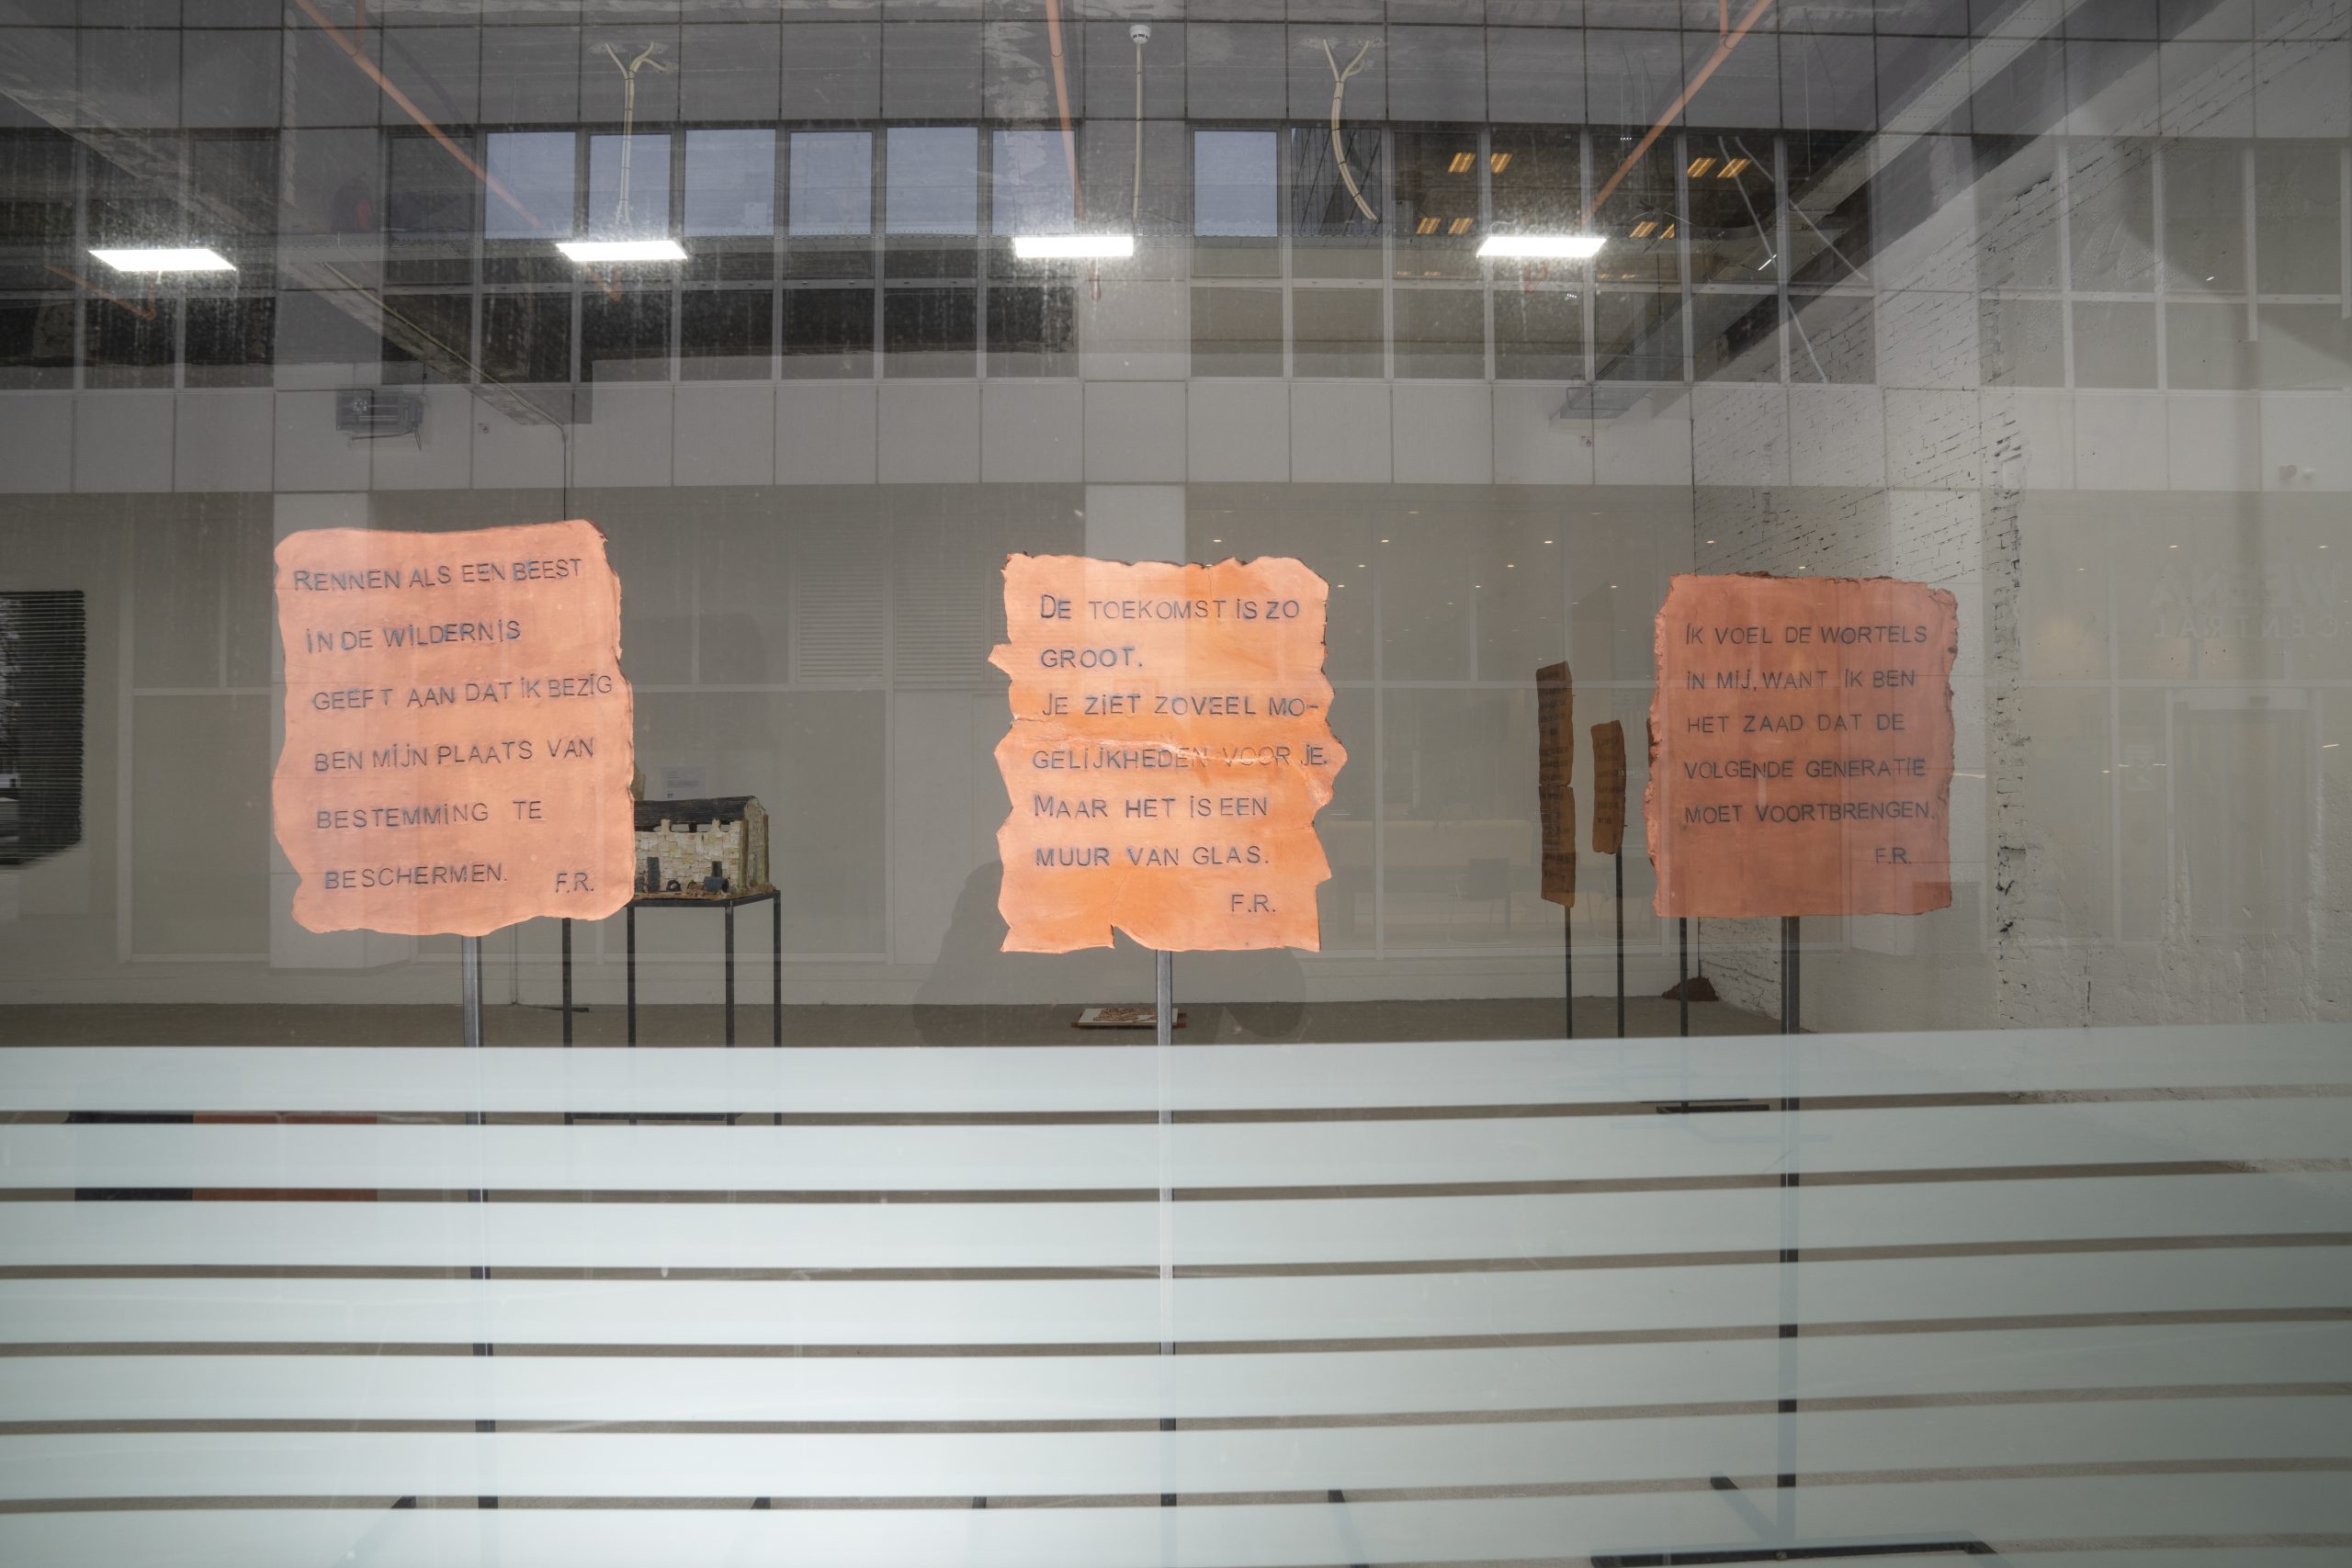 RENNEN ALS EEN BEEST
IN DE WILDERNIS
GEEFT AAN DAT IK BEZIG
BEN MIJN PLAATS VAN
BESTEMMING TE
BESCHERMEN. F.R.
DE TOEKOMST IS ZO
GROOT.
JE ZIET ZOVEEL MO-
GELIJKHEDEN VOOR JE.
MAAR HET IS EEN
MUUR VAN GLAS.
F.R.
IK VOEL DE WORTELS
IN MIJ, WANT IK BEN
HET ZAAD DAT DE
VOLGENDE GENERATIE
MOET VOORTBRENGEN.
F.R.